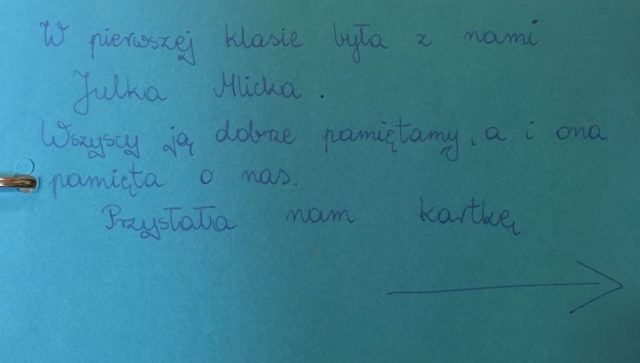 W pierwszej klasie była z nami
Julka Mlicka.
Wszyscy ją dobrze pamiętamy, a i ona
pamięta o nas.
Przysłała nam kartkę